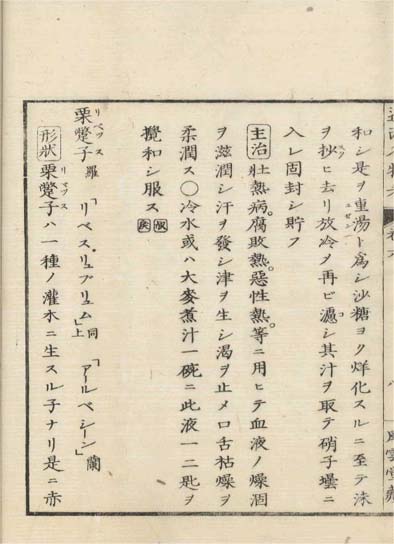 和シ是ヲ重湯ト為シ沙糖ヨク烊化スルニ至テ沫
ヲ抄ヒ去リ放冷メ再ビ濾シ其汁ヲ取テ硝子壜ニ
入レ固封シ貯フ
主治 壯熱病。腐敗熱。惡性熱。等ニ用ヒテ血液ノ燥涸
ヲ滋潤シ汗ヲ發シ津ヲ生シ渴ヲ止メ口舌枯燥ヲ
柔潤ス〇冷水或ハ大麥煮汁一碗ニ此液一二匙ヲ
攪和シ服ス
栗躄子 リベッス 羅 「リベス、リュブリュム」 同上 「アールベシーン」 蘭
形狀 栗躄子 リベス ハ一種ノ灌木ニ生スル子ナリ是ニ赤